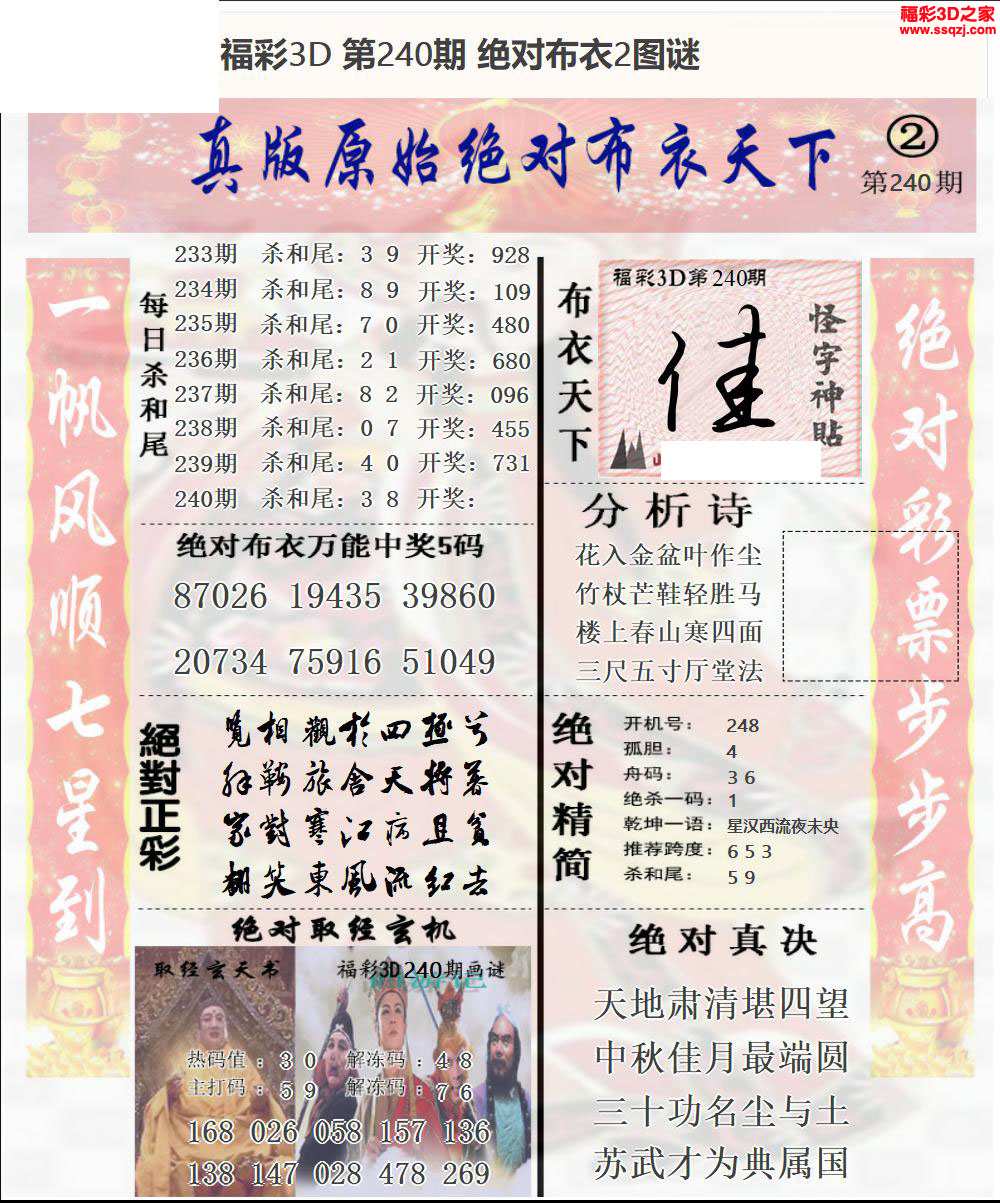 福彩3D之家
www.ssqzj.com
福彩3D 第240期 绝对布衣2图谜
真版原始绝对布衣天下
②
第240期
一帆风顺七星到
每日杀和尾
233期 杀和尾：3 9 开奖：928
234期 杀和尾：8 9 开奖：109
235期 杀和尾：7 0 开奖：480
236期 杀和尾：2 1 开奖：680
237期 杀和尾：8 2 开奖：096
238期 杀和尾：0 7 开奖：455
239期 杀和尾：4 0 开奖：731
240期 杀和尾：3 8 开奖：
绝对布衣万能中奖5码
87026 19435 39860
20734 75916 51049
絕對正彩
覽相觀於四極兮
解鞍旅舍天將暮
家對寒江病且貧
翻笑東風流紅去
绝对取经玄机
取经玄天书
福彩3D240期画谜
热码值：3 0 解冻码：4 8
主打码：5 9 解冻码：7 6
168 026 058 157 136
138 147 028 478 269
布衣天下
福彩3D第240期
佳
怪字神貼
分析诗
花入金盆叶作尘
竹杖芒鞋轻胜马
楼上春山寒四面
三尺五寸厅堂法
绝对精简
开机号：248
孤胆：4
舟码：3 6
绝杀一码：1
乾坤一语：星汉西流夜未央
推荐跨度：6 5 3
杀和尾：5 9
绝对真决
天地肃清堪四望
中秋佳月最端圆
三十功名尘与土
苏武才为典属国
绝对彩票步步高